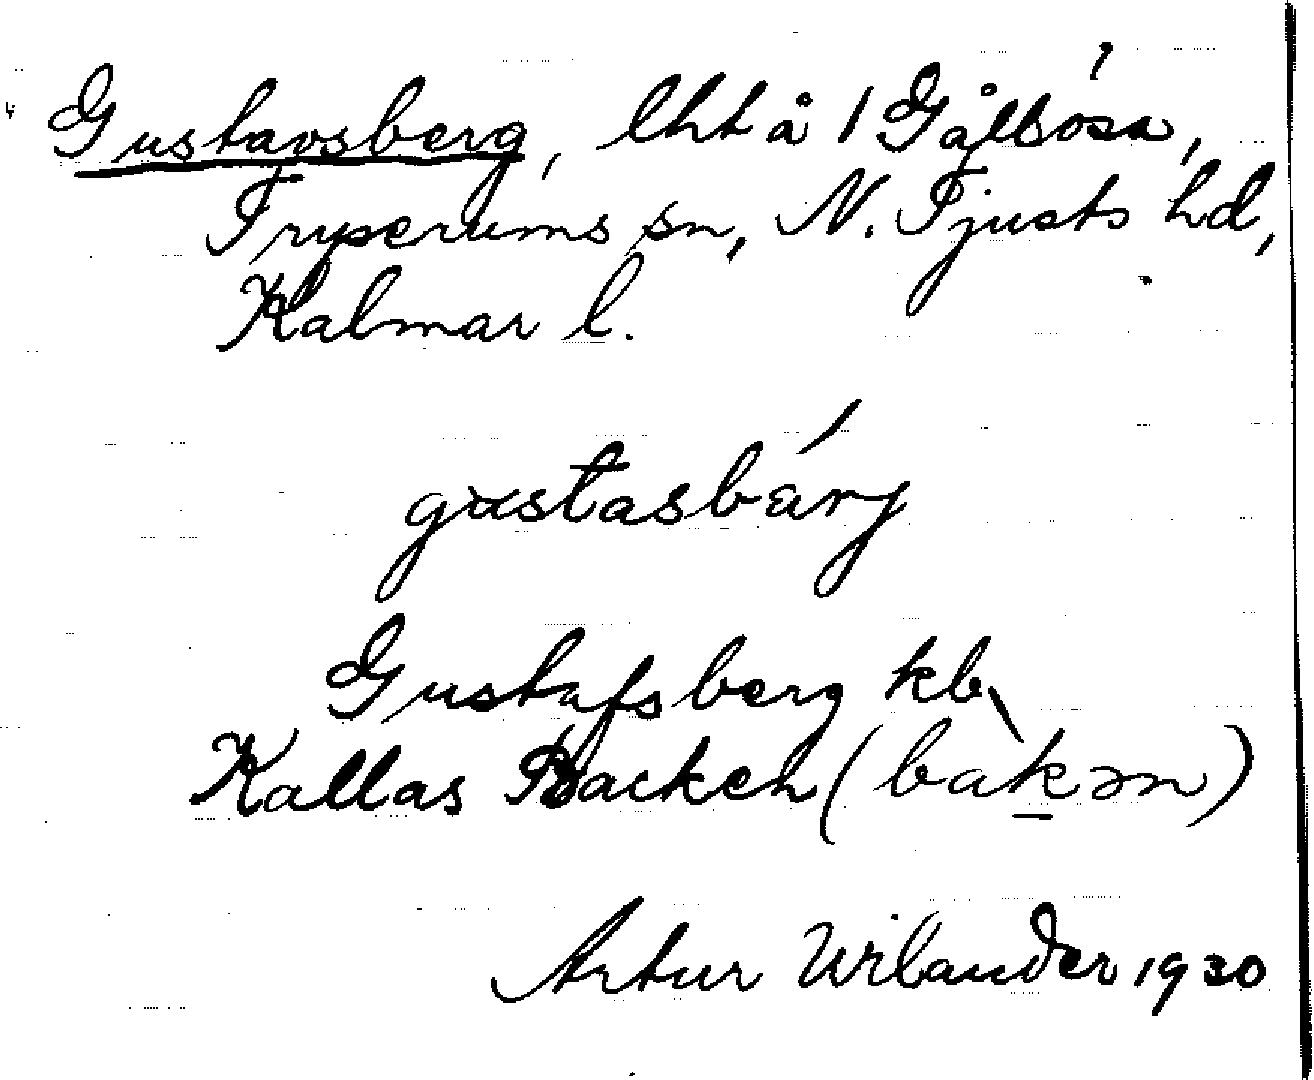 Gustavsberg, lht å 1 Gålösa,
Tryserums sn, N. Tjusts hd,
Kalmar l.
gustasbárj
Gustafsberg kb
Kallas Backen (bàkən)
Artur Wilander 1930